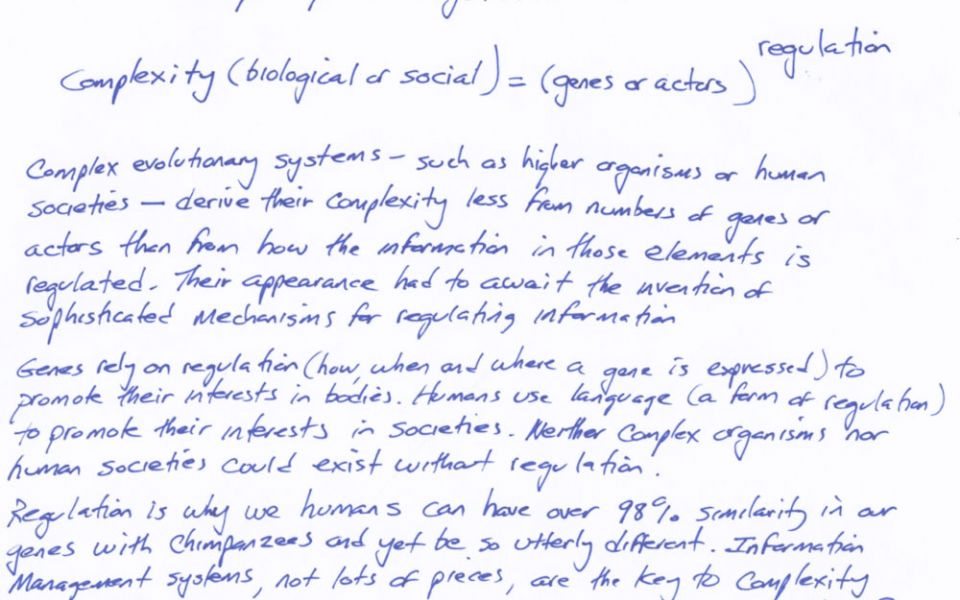 regulation
Complexity (biological or social) = (genes or actors)
Complex evolutionary systems – such as higher organisms or human
societies — derive their complexity less from numbers of genes or
actors than from how the information in those elements is
regulated. Their appearance had to await the invention of
sophisticated mechanisms for regulating information
Genes rely on regulation (how, when and where a gene is expressed) to
promote their interests in bodies. Humans use language (a form of regulation)
to promote their interests in societies. Neither complex organisms nor
human societies could exist without regulation.
Regulation is why we humans can have over 98% similarity in our
genes with Chimpanzees and yet be so utterly different. Information
Management systems, not lots of pieces, are the key to complexity